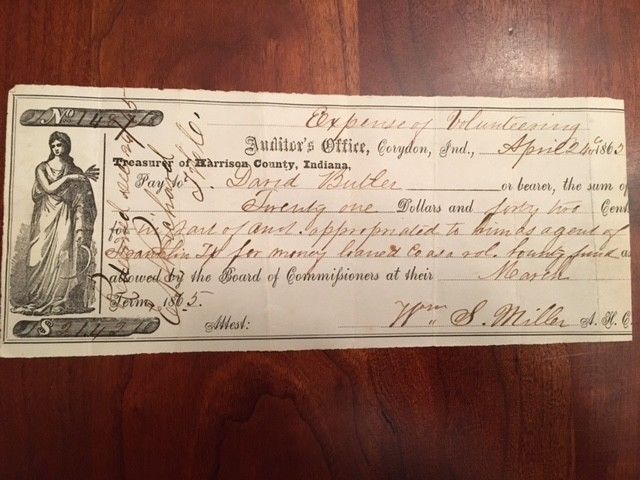 Expense of Volunteering
Auditor's Office, Corydon, Ind., April 24 1865
Treasurer of Harrison County, Indiana,
Pay to David Butler or bearer, the sum of
Twenty one Dollars and forty two Cent
for in part of amt. appropriated to agent of
Franklin Tp for money loaned Co as a vol. bounty fund as
allowed by the Board of Commissioners at their March
Term, 1865.
Attest: Wm S. Miller A. H. C
No
$ 21 42